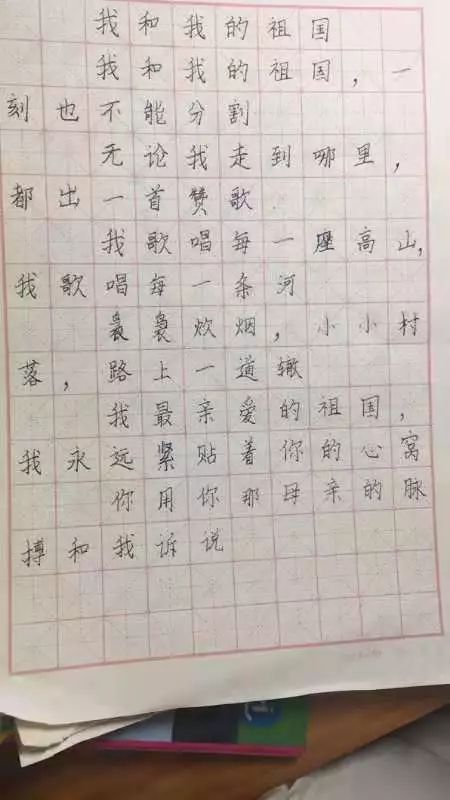 我和我的祖国
我和我的祖国，一
刻也不能分割
无论我走到哪里，
都出一首赞歌
我歌唱每一座高山，
我歌唱每一条河
袅袅炊烟，小小村
落，路上一道辙
我最亲爱的祖国，
我永远紧贴着你的心窝
你用你那母亲的脉
搏和我诉说